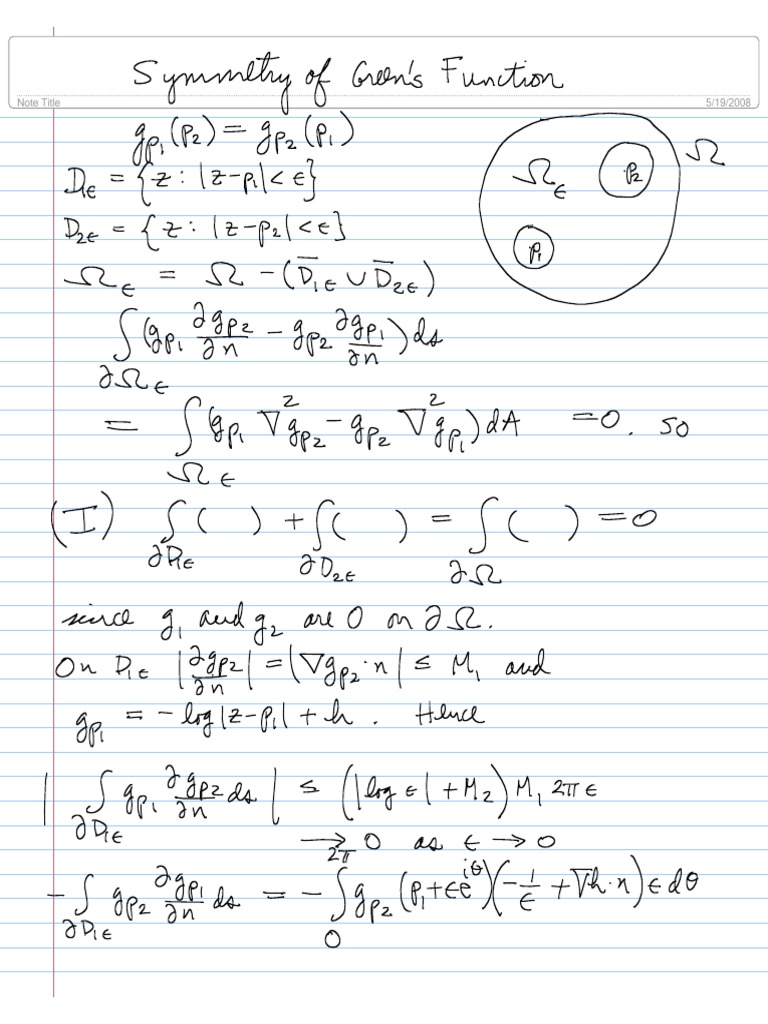 Symmetry of Green's Function
Note Title 5/19/2008
g_{p_1}(p_2) = g_{p_2}(p_1)
D_{1ϵ} = {z : |z-p_1| < ϵ}
D_{2ϵ} = {z : |z-p_2| < ϵ}
Ω_ϵ p_2 Ω
p_1
Ω_ϵ = Ω - (D̅_{1ϵ} ∪ D̅_{2ϵ})
∫_{∂Ω_ϵ} (g_{p_1} ∂g_{p_2}/∂n - g_{p_2} ∂g_{p_1}/∂n) ds
= ∫_{Ω_ϵ} (g_{p_1} ∇² g_{p_2} - g_{p_2} ∇² g_{p_1}) dA = 0. so
(I) ∫_{∂D_{1ϵ}} ( ) + ∫_{∂D_{2ϵ}} ( ) = ∫_{∂Ω} ( ) = 0
since g_1 and g_2 are 0 on ∂Ω.
On D_{1ϵ} |∂g_{p_2}/∂n| = |∇g_{p_2}·n| ≤ M_1 and
g_{p_1} = - log|z-p_1| + h. Hence
| ∫_{∂D_{1ϵ}} g_{p_1} ∂g_{p_2}/∂n ds | ≤ (|log ϵ| + M_2) M_1 2πϵ
→ 0 as ϵ → 0
- ∫_{∂D_{1ϵ}} g_{p_2} ∂g_{p_1}/∂n ds = - ∫_0^{2π} g_{p_2}(p_1+ϵe^{iθ})(-1/ϵ + ∇h·n) ϵ dθ